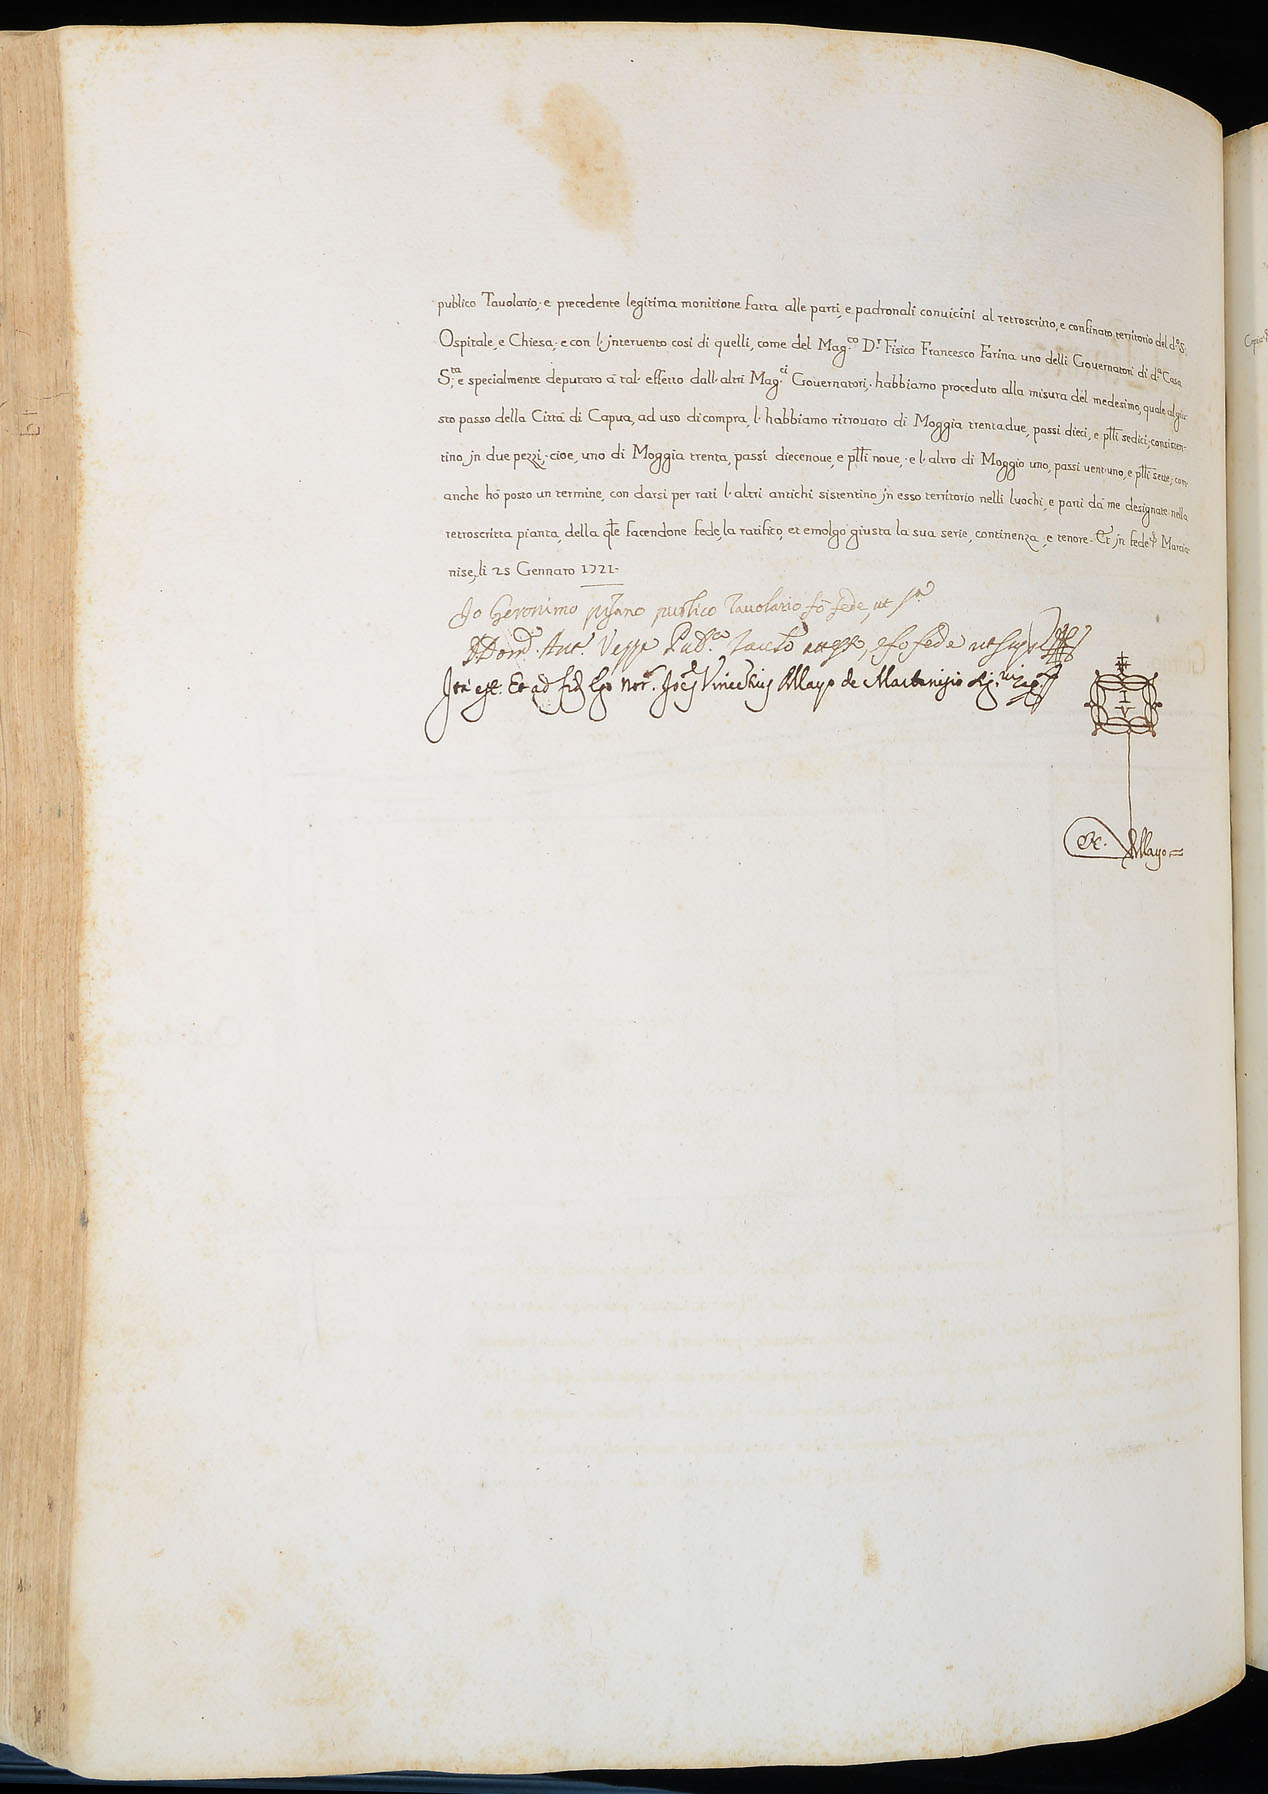 publico Tauolario, e precedente legitima monitione fatta alle parti, e padronali conuicini al retroscritto, e confinato territorio del d.º S.
Ospitale, e Chiesa, e con l'interuento così di quelli, come del Mag.co D.r Fisico Francesco Farina uno delli Gouernatori di d.a Casa
S.ta e specialmente deputato a tal' effetto dall' altri Mag.ci Gouernatori, habbiamo proceduto alla misura del medesimo, quale al giu-
sto passo della Città di Capua, ad uso di compra, l' habbiamo ritrouato di Moggia trentadue, passi dieci, e ptti sedici; consisten-
tino in due pezzi, cioe, uno di Moggia trenta, passi diecenoue, e ptti noue, e l' altro di Moggio uno, passi uent'uno, e ptti sette; con
anche hò posto un termine, con darsi per rati l' altri antichi sistentino in esso territorio nelli luochi, e parti da me designate nella
retroscritta pianta, della qle facendone fede, la ratifico, et emolgo giusta la sua serie, continenza, e tenore. Et in fede Marcia-
nise, li 25 Gennaro 1721-
Io Geronimo pisano publico Tauolario fò fede, ut s.a
Ant.
fò fede ut supra
Ita est. Et ad fid. ego Not. Vincentius Mayo de Martianisio
I V
&c. Mayo